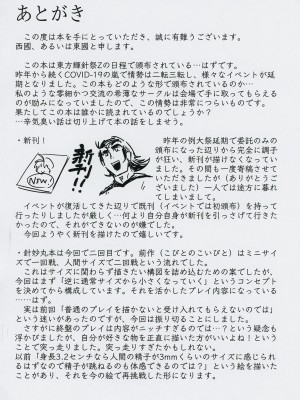 あとがき
この度は本を手にとっていただき、誠に有難うございます。
西國、あるいは東國と申します。
この本は東方輝針祭Zの日程で頒布されている…はずです。
昨年から続くCOVID-19の嵐で情勢は二転三転し、様々なイベントが延
期となりました。この本もどのような形で頒布されているのか…
私のような零細かつ交流の希薄なサークルは会場で手に取ってもらえる
のが励みになっていましたので、この情勢は非常につらいものです。
果たしてこの本は誰かに読まれているのでしょうか？
…辛気臭い話は切り上げて本の話をしましょう。
・新刊！
Now!
新刊!!
昨年の例大祭延期で委託のみの
頒布になった辺りから完全に調子
が狂い、新刊が描けなくなってい
ました。その間も一度寄稿させて
いただきましたが（ありがとうご
ざいました）一人では途方に暮れ
てしまいまして。
イベントが復活してきた辺りで既刊（イベントでは初頒布）を持って
行ったりしましたが厳しく…何より自分自身が新刊を引っさげて行きた
かったので、それができないのが嫌でした。
今回ようやく新刊が描けたので嬉しいです。
・針妙丸本は今回で二回目です。前作（こびとのこいびと）はミニサイ
ズで一回戦、人間サイズで二回戦という流れでした。
これはサイズに関わらず描きたい構図を詰め込むための案でしたが、
今回はまず「逆に通常サイズから小さくなっていく」というコンセプト
を決めてから構成しています。それを活かしたプレイ内容になっている
……はず。
実は前回「普通のプレイを描かないと受け入れてもらえないのでは」
という迷いがあったのですが、今回は振り切ることにしました。
さすがに終盤のプレイは内容がニッチすぎるのでは…？という疑念も
浮かびましたが、自分が好きな物を正直に描いた方がいいよね！という
ことで突っ走りました。突っ走りすぎたかもしれない。
以前「身長3.2センチなら人間の精子が3mmくらいのサイズに感じられ
るはずなので精子が跳ねるのも体感できるのでは？」という絵を描いた
ことがあり、それを今の絵で再挑戦した形になります。